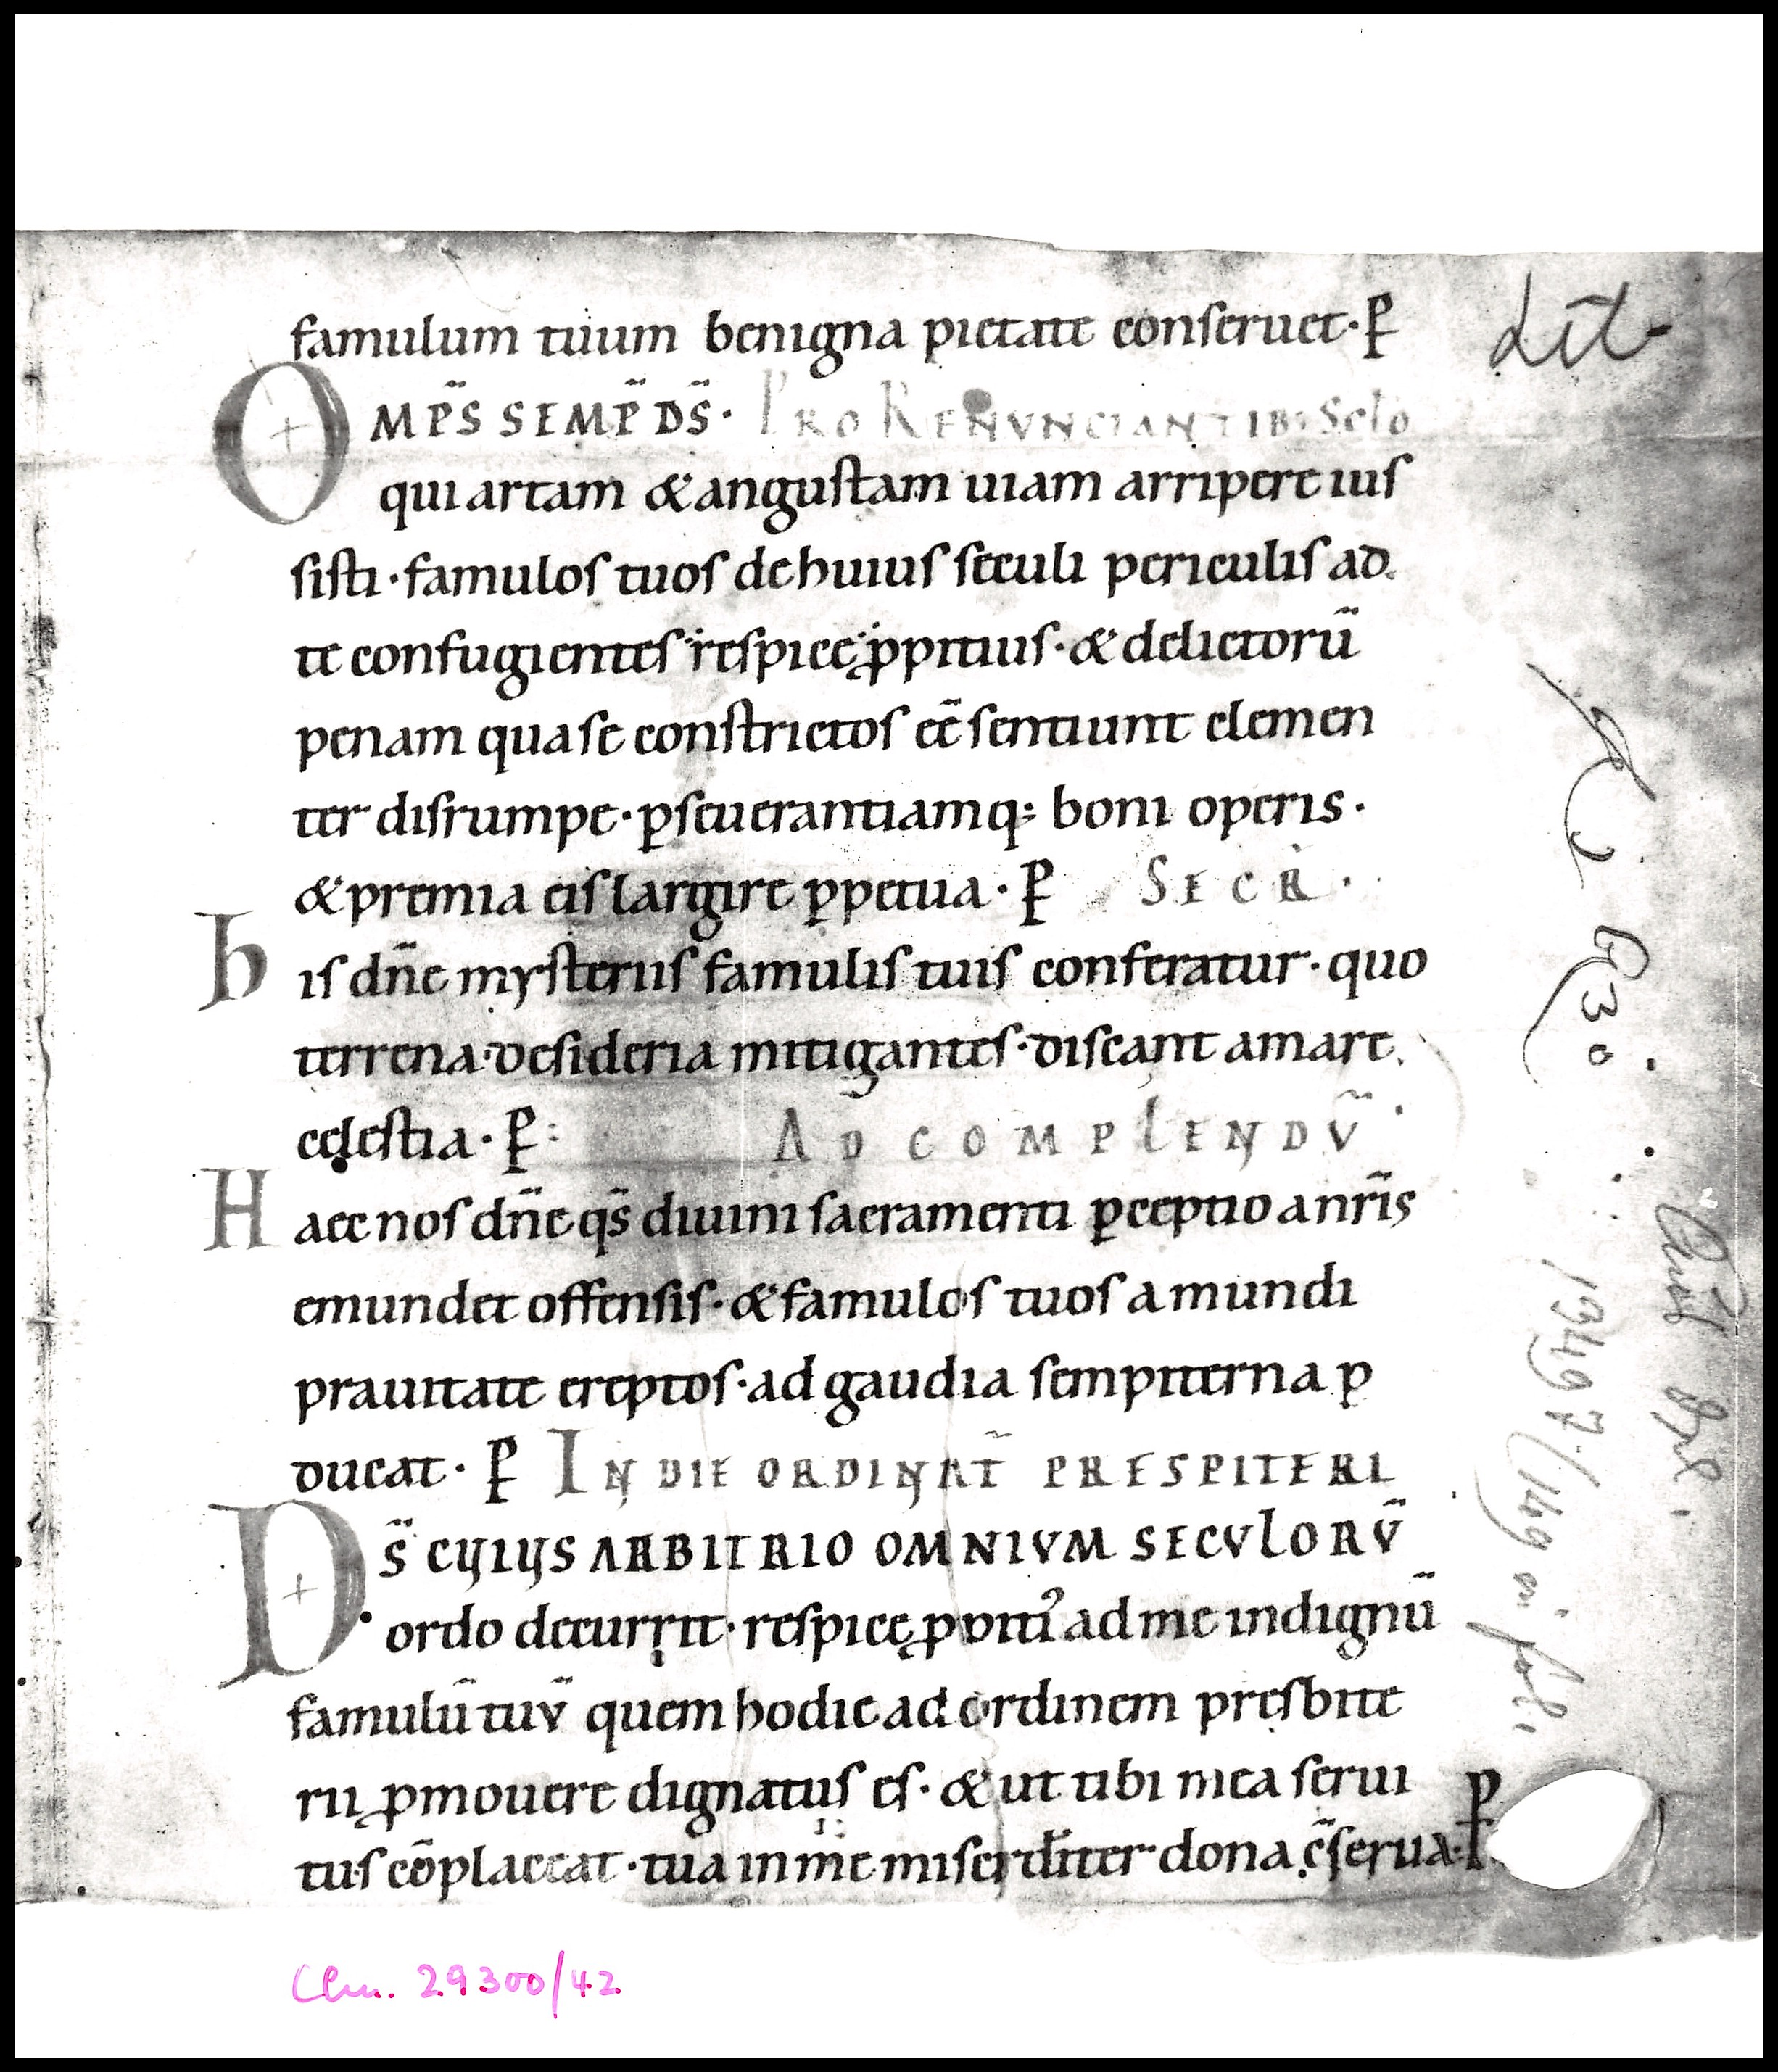 famulum tuum benigna pietate conseruet· P̄
Lit-
OMP̄S SEMP̄ D̄S· PRO RENVNCIANTIB; Sclo
qui artam & angustam uiam arripere ius
sisti· famulos tuos de huius seculi periculis ad
te confugientes respice ꝓpitius· & delictorū
penam qua se constrictos eē sentiunt clemen
ter disrumpe· ꝑseuerantiamq; boni operis·
& premia eis largire ꝑpetua· P̄ SECR̄·
his dn̄e mysteriis famulis tuis conferatur· quo
terrena desideria mitigantes· discant amare
celestia· P̄: AD COMPLENDV̄
Haec nos dn̄e qs̄ diuini sacramenti ꝑceptio a nr̄is
emundet offensis· & famulos tuos a mundi
prauitate ereptos· ad gaudia sempiterna ꝑ
ducat· P̄ IN DIE ORDINAT̄ PRESPITERI
DS̄ CUIUS ARBITRIO OMNIVM SECVLORV̄
ordo decurrit· respice ꝓpiti᾽ ad me indignū
famulū tuū quem hodie ad ordinem presbite
rii ꝓmouere dignatus es· & ut tibi mea serui
tus cōplaceat· tua in me misericorditer dona c̄serua· P̄
Clm. 29300/42